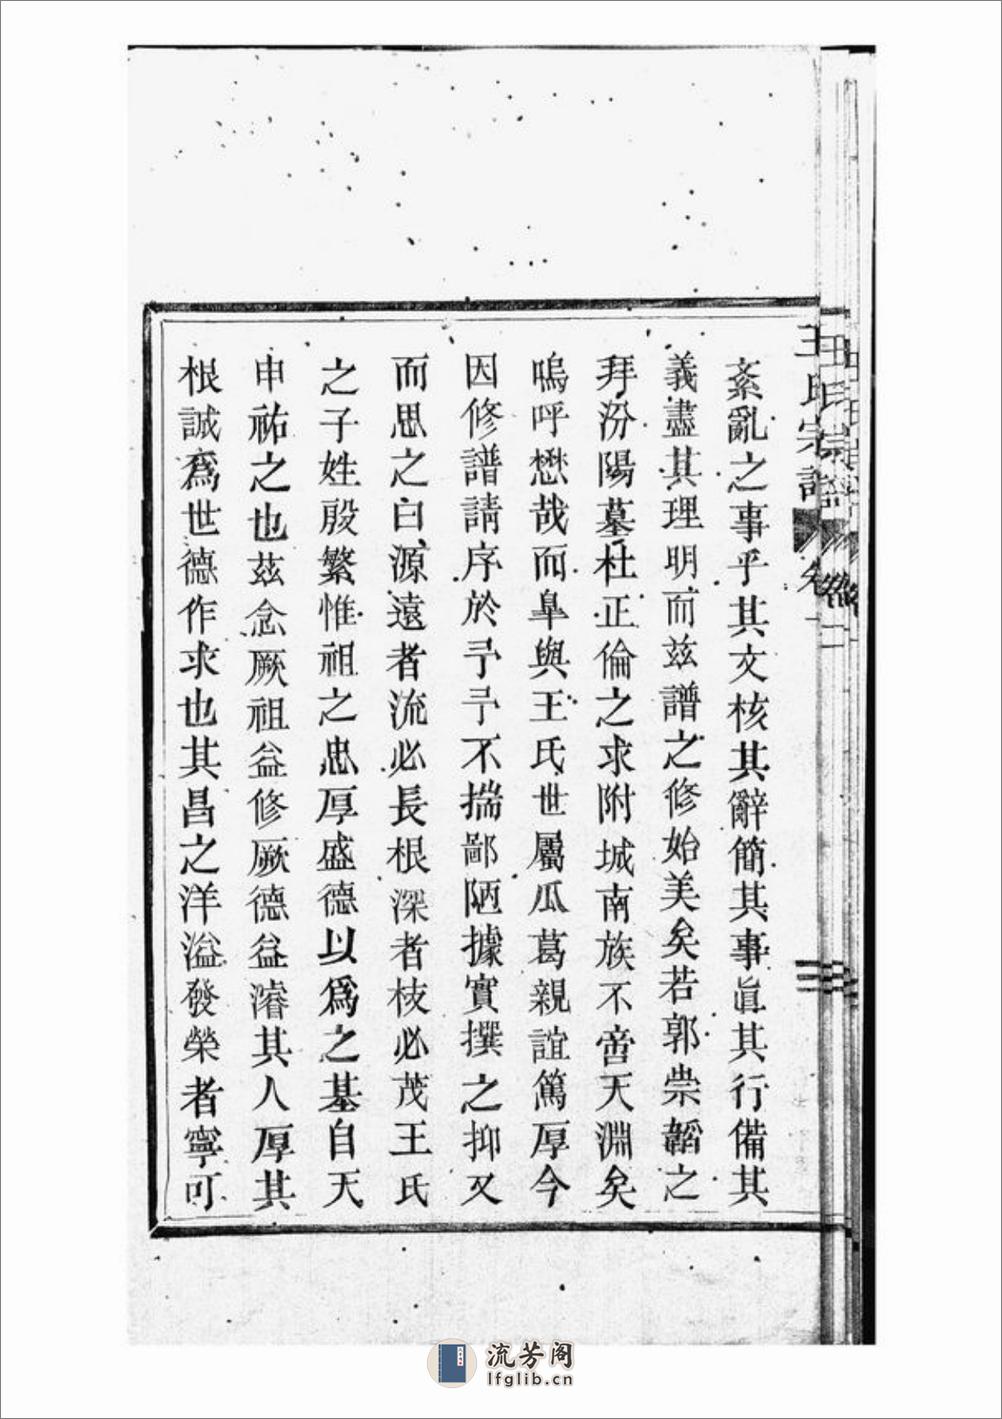 王氏宗譜
紊亂之事乎其文核其辭簡其事眞其行備其
義盡其理明而玆譜之修始美矣若郭崇韜之
拜汾陽墓杜正倫之求附城南族不啻天淵矣
嗚呼懋哉而阜與王氏世屬瓜葛親誼篤厚今
因修譜請序於予予不揣鄙陋據實撰之抑又
而思之曰源遠者流必長根深者枝必茂王氏
之子姓殷繁惟祖之忠厚盛德以爲之基自天
申祐之也玆念厥祖益修厥德益濬其人厚其
根誠爲世德作求也其昌之洋溢發榮者寧可
流芳阁
lfglib.cn